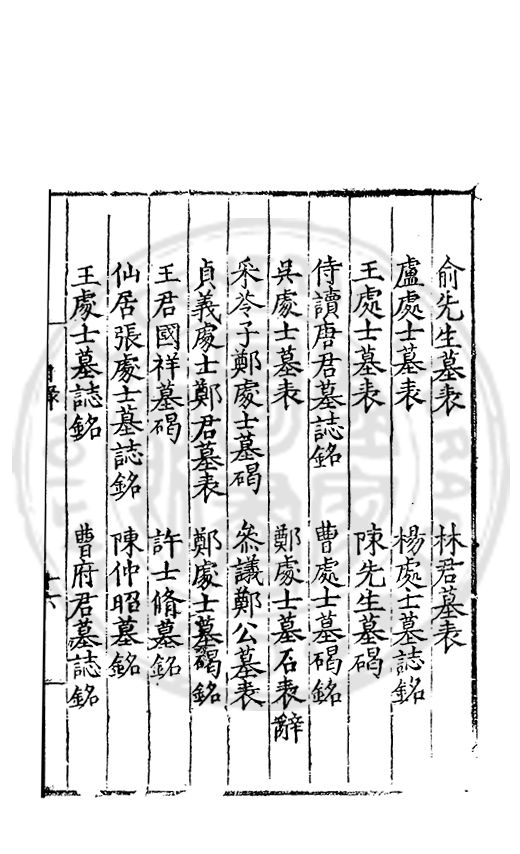 俞先生墓表　林君墓表
盧處士墓表　楊處士墓誌銘
王處士墓表　陳先生墓碣
侍讀唐君墓誌銘　曹處士墓碣銘
吳處士墓表　鄭處士墓石表辭
采苓子鄭處士墓碣　叅議鄭公墓表
貞義處士鄭君墓表　鄭處士墓碣銘
王君國祥墓碣　許士脩墓銘
仙居張處士墓誌銘　陳仲昭墓銘
王處士墓誌銘　曹府君墓誌銘
目錄